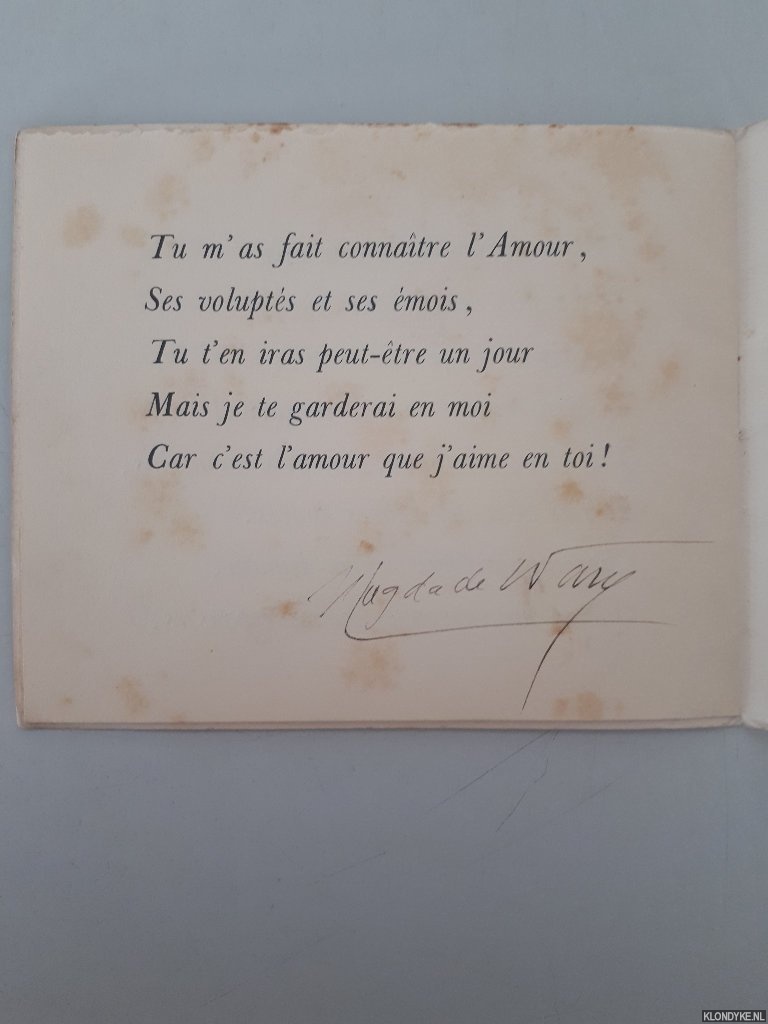 Tu m'as fait connaître l'Amour,
Ses voluptés et ses émois,
Tu t'en iras peut-être un jour
Mais je te garderai en moi
Car c'est l'amour que j'aime en toi!
Magda de Wary
KLONDYKE.NL